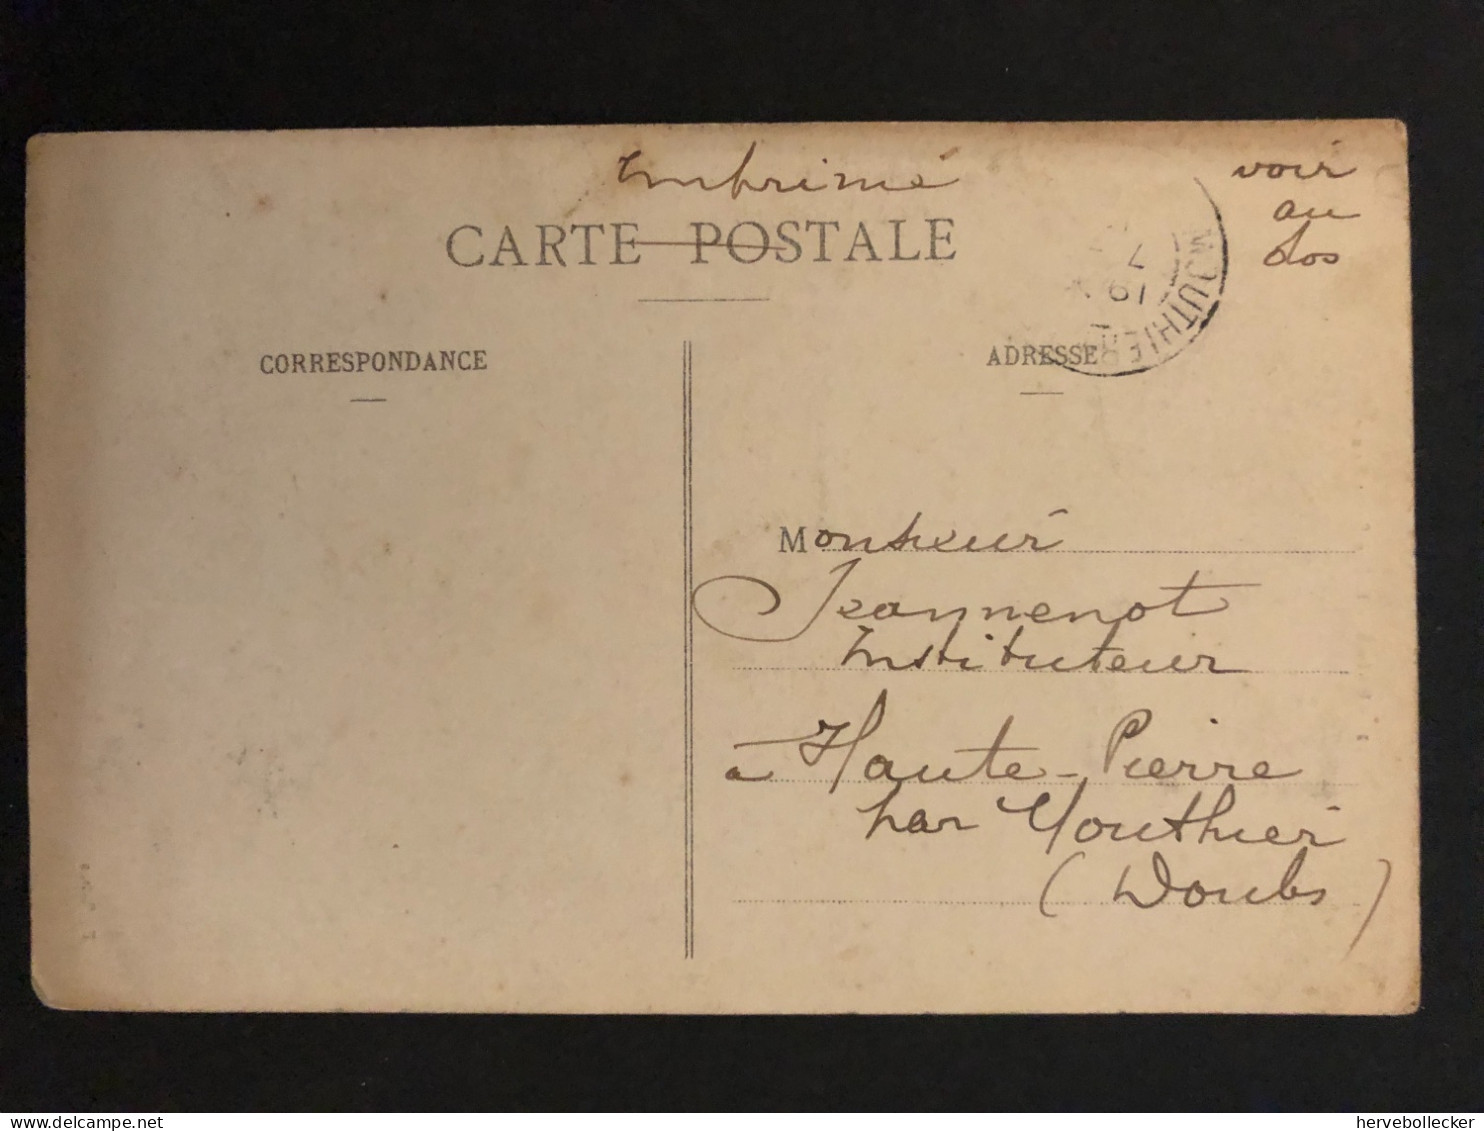 Imprimé
voir
au
dos
CARTE POSTALE
MOUTHIER
19
7
CORRESPONDANCE
ADRESSE
Monsieur
Jeannenot
Instituteur
à Haute-Pierre
par Mouthier
(Doubs)
hervebollecker